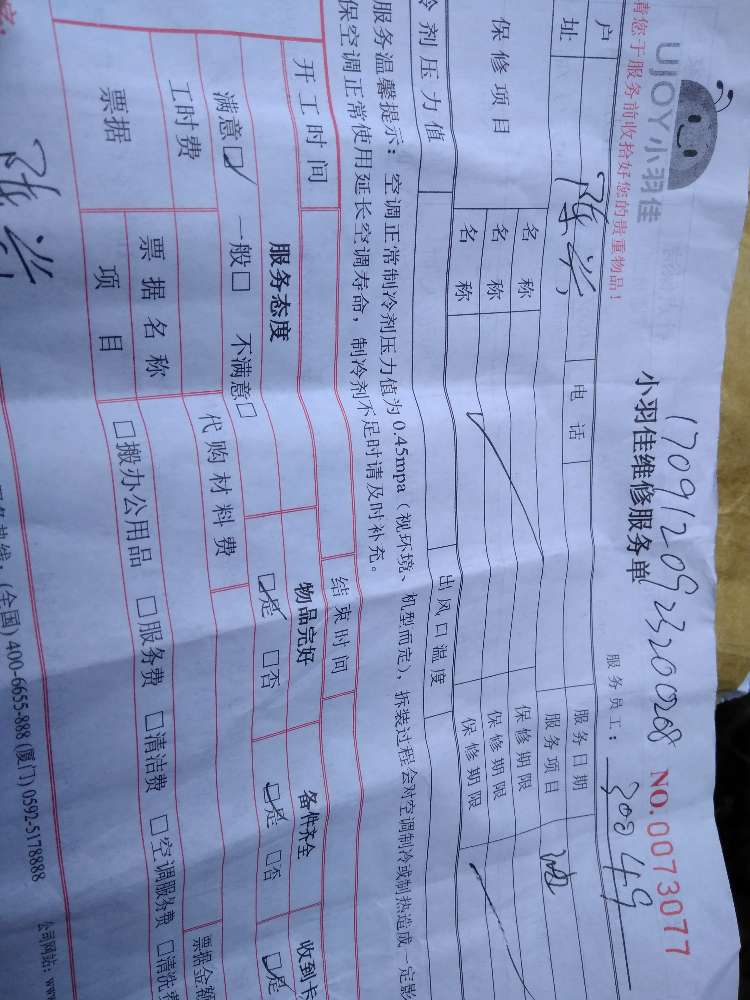 UJOY小羽佳
请您于服务前收拾好您的贵重物品!
170912092320028
小羽佳维修服务单
NO.0073077
服务员工: 30048
户 电话 服务日期
址 服务项目
保修项目
名称 保修期限
名称 保修期限
名称 保修期限
冷剂压力值 出风口温度
服务温馨提示:空调正常制冷剂压力值为0.45mpa(视环境、机型而定),拆装过程会对空调制冷或制热造成一定影
保空调正常使用延长空调寿命,制冷剂不足时请及时补充。
开工时间 结束时间
服务态度 物品完好 备件齐全 收到卡
满意☑ 一般□ 不满意□ ☑是 □否 ☑是 □否 ☑是
工时费 代购材料费
票据 票据名称 票据金额
项目 □搬办公用品 □服务费 □清洁费 □空调服务费 □清洗费
(全国) 400-6655-888 (厦门) 0592-5178888
公司网站:www